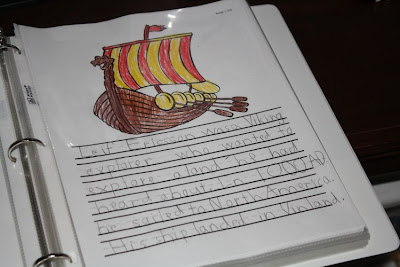 Leif Ericsson was a Viking
explorer who wanted to
explore a land he had
heard about. In 1000 AD
he sailed to North America.
His ship landed in Vinland.